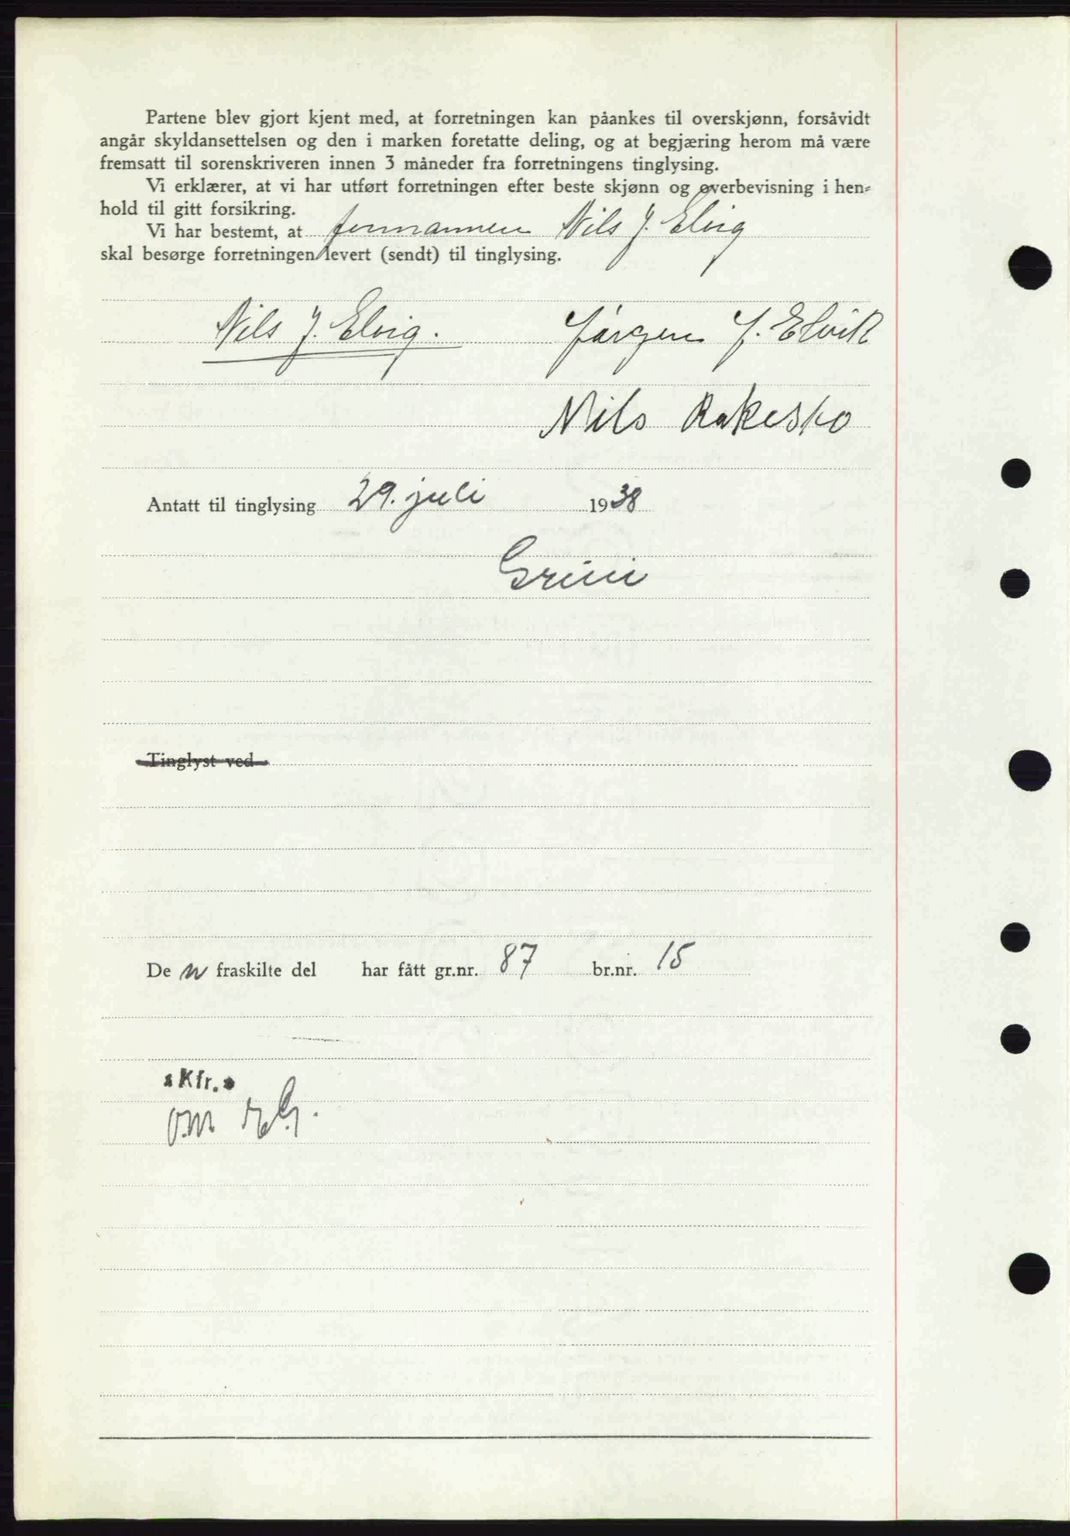 Partene blev gjort kjent med, at forretningen kan påankes til overskjønn, forsåvidt
angår skyldansettelsen og den i marken foretatte deling, og at begjæring herom må være
fremsatt til sorenskriveren innen 3 måneder fra forretningens tinglysing.
Vi erklærer, at vi har utført forretningen efter beste skjønn og overbevisning i hen=
hold til gitt forsikring.
Vi har bestemt, at formannen Nils J. Elvig
skal besørge forretningen levert (sendt) til tinglysing.
Nils J. Elvig. Jørgen J. Elvik
Nils Rakesko
Antatt til tinglysing 29. juli 1938
Grini
Tinglyst ved
De n fraskilte del har fått gr.nr. 87 br.nr. 15
Kfr.